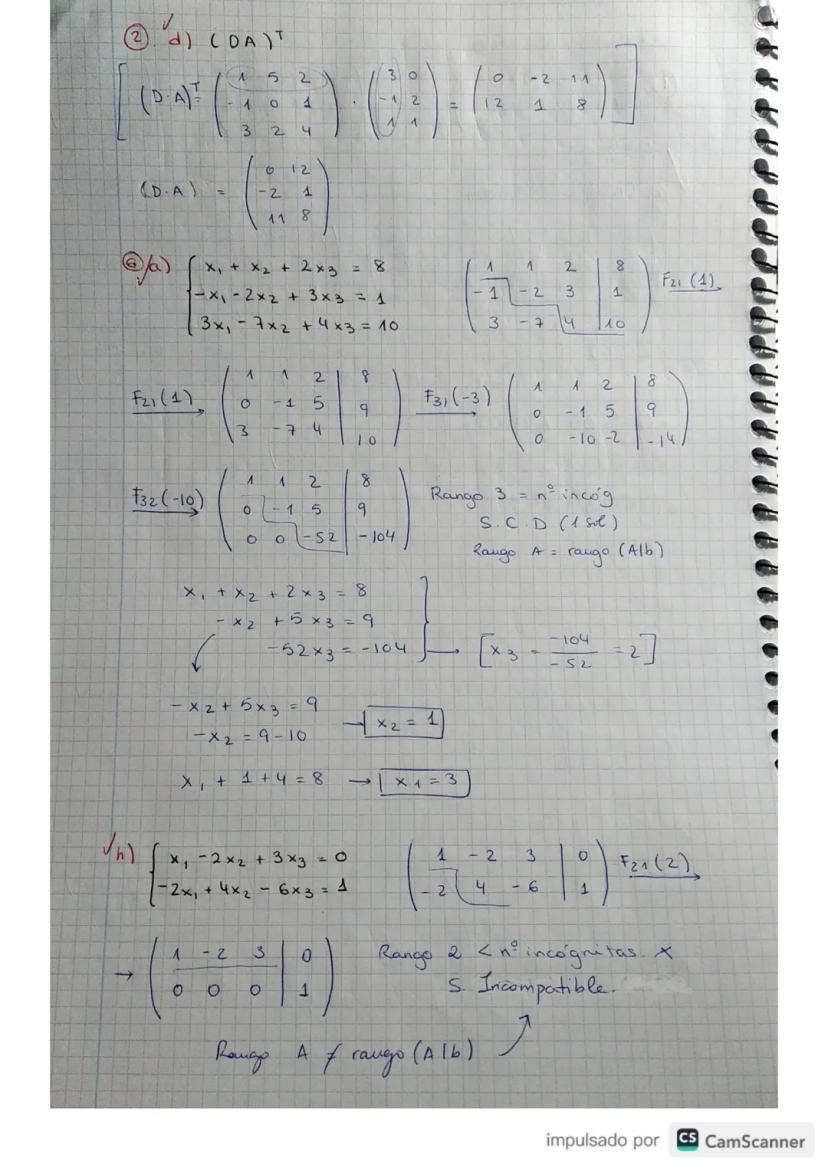 ② d) (DA)ᵀ
[ (D·A)ᵀ= ( 1 5 2 ) · ( 3 0 ) = ( 0 -2 11 ) ]
( -1 0 1 ) ( -1 2 ) ( 12 1 8 )
( 3 2 4 ) ( 1 1 )
(D.A) = ( 0 12 )
( -2 1 )
( 11 8 )
⑥ a) { x₁ + x₂ + 2x₃ = 8
-x₁ - 2x₂ + 3x₃ = 1
3x₁ - 7x₂ + 4x₃ = 10
( 1 1 2 | 8 )
( -1 -2 3 | 1 ) F₂₁(1)
( 3 -7 4 | 10 )
F₂₁(1) → ( 1 1 2 | 8 )
( 0 -1 5 | 9 )
( 3 -7 4 | 10 )
F₃₁(-3) → ( 1 1 2 | 8 )
( 0 -1 5 | 9 )
( 0 -10 -2 | -14 )
F₃₂(-10) → ( 1 1 2 | 8 )
( 0 -1 5 | 9 )
( 0 0 -52 | -104 )
Rango 3 = nº incóg
S.C.D (1 sol)
Rango A = rango (A|b)
x₁ + x₂ + 2x₃ = 8
-x₂ + 5x₃ = 9
-52x₃ = -104 → [ x₃ = -104/-52 = 2 ]
-x₂ + 5x₃ = 9
-x₂ = 9-10 → x₂ = 1
x₁ + 1 + 4 = 8 → x₁ = 3
h) { x₁ - 2x₂ + 3x₃ = 0
-2x₁ + 4x₂ - 6x₃ = 1
( 1 -2 3 | 0 ) F₂₁(2) →
( -2 4 -6 | 1 )
→ ( 1 -2 3 | 0 )
( 0 0 0 | 1 )
Rango 2 < nº incógnitas. x
S. Incompatible.
Rango A ≠ rango (A|b)
impulsado por CS CamScanner